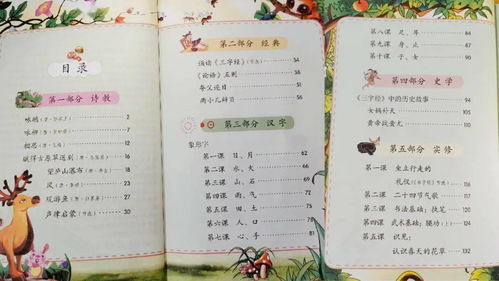 目录
第一部分 诗教
咏鹅（唐·骆宾王） 2
咏柳（唐·贺知章） 7
相思（唐·王维） 12
赋得古原草送别（唐·白居易）
望庐山瀑布（唐·李白）
风（唐·李峤） 23
观游鱼（唐·白居易） 27
声律启蒙（节选） 30
第二部分 经典
诵读《三字经》（节选） 54
《论语》五则 56
夸父逐日 58
两小儿辩日
第三部分 汉字
象形字
第一课 日、月 62
第二课 水、火 66
第三课 山、石 69
第四课 雨、气 72
第五课 田、土 75
第六课 人、口 78
第七课 心、手 81
第八课 足、耳 84
第九课 身、止 87
第十课 子、女 90
第四部分 史学
《三字经》中的历史故事 94
女娲补天
黄帝战蚩尤
第五部分 实修
第一课 坐立行走的
礼仪（《弟子规》节选） 116
第二课 二十四节气歌
第三课 书法基础：执笔
第四课 武术基础：腰功（上）
第五课 识见：
认识春天的花草 132